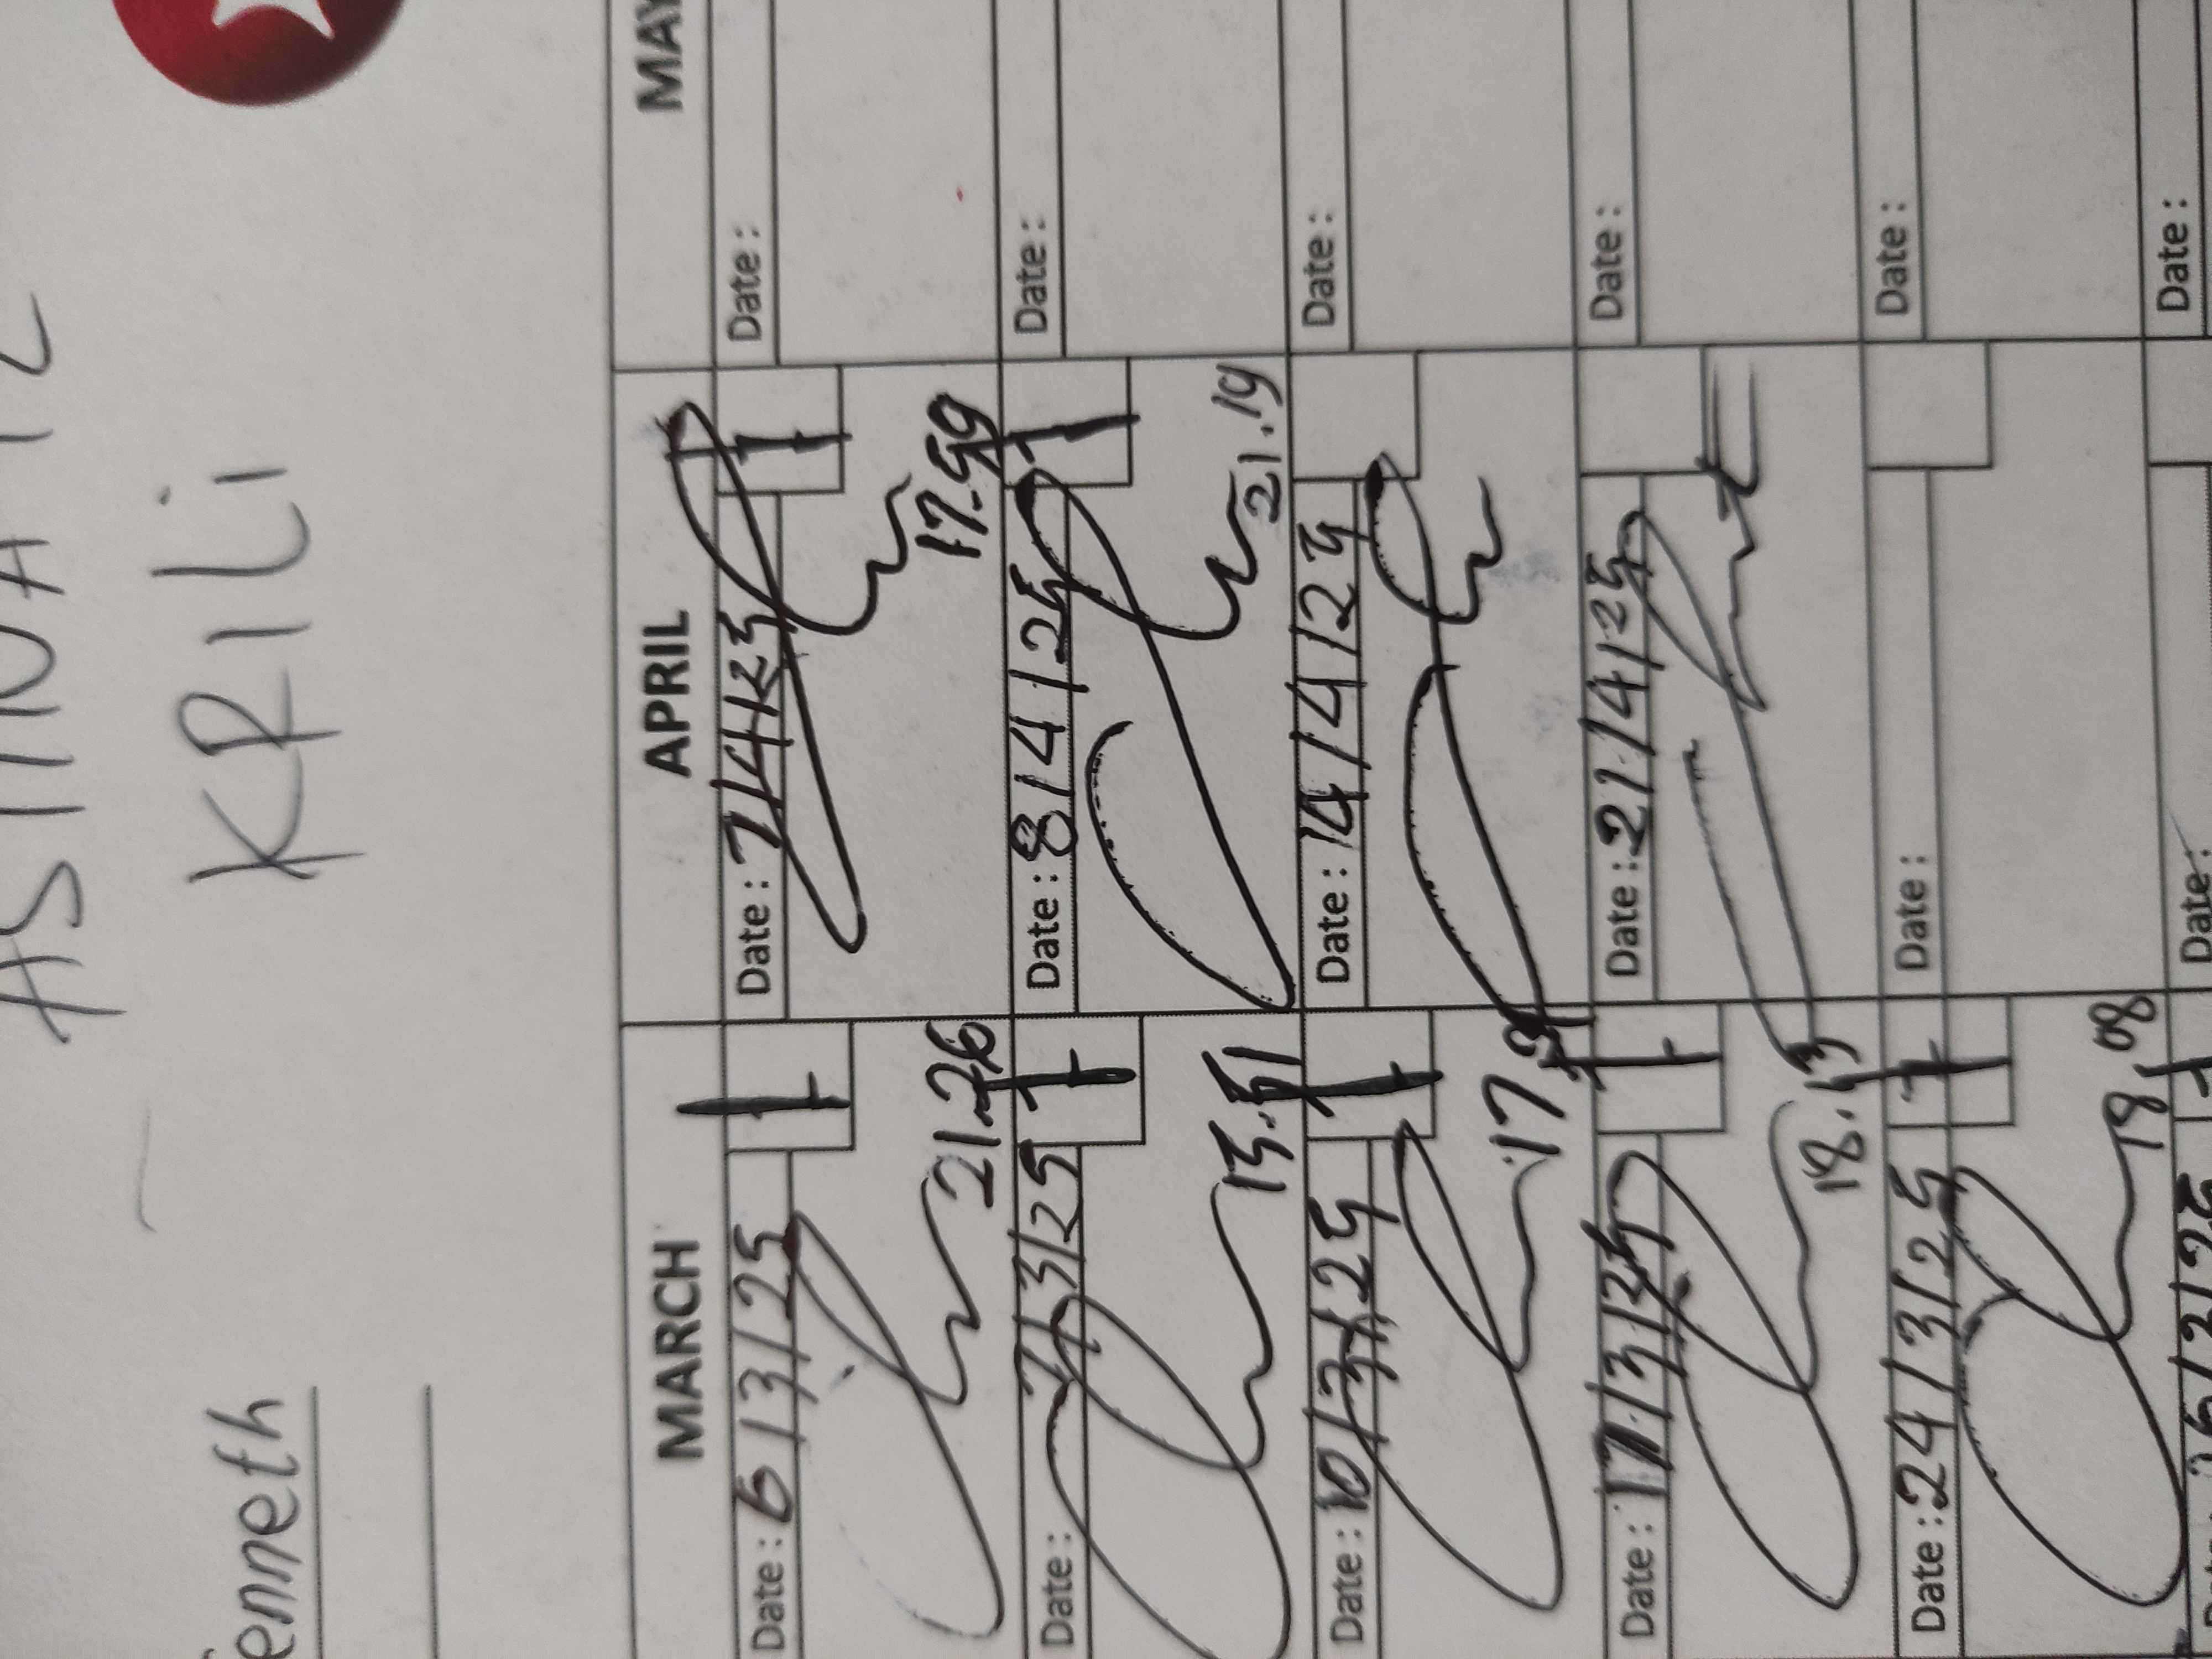 KRILi
enneth
MARCH APRIL MAY
Date: 6/3/25 Date: 7/4/25 Date:
21.26 17.59
Date: 7/3/25 Date: 8/4/25 Date:
15.51 21.19
Date: 10/3/25 Date: 14/4/25 Date:
17
Date: 17/3/25 Date: 21/4/25 Date:
18.13
Date: 24/3/25 Date: Date:
19.08
Date: Date: